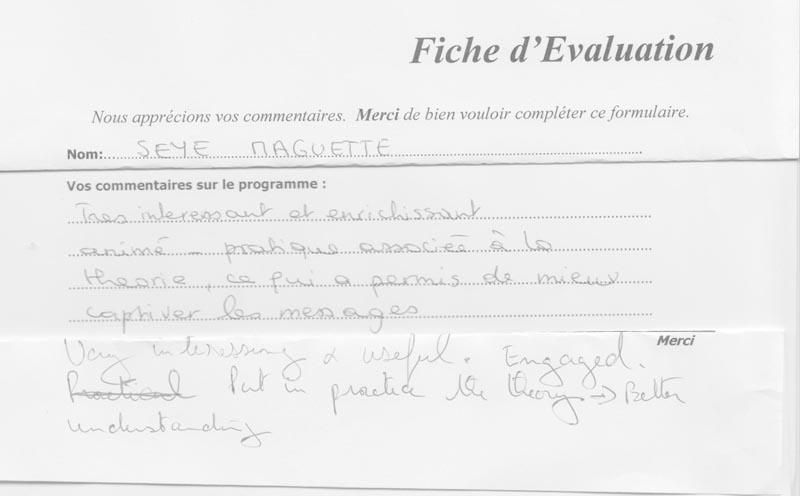 Fiche d'Evaluation
Nous apprécions vos commentaires. Merci de bien vouloir compléter ce formulaire.
Nom: SEYE MAGUETTE
Vos commentaires sur le programme :
Tres interessant et enrichissant
animé - pratique associée à la
theorie, ce qui a permis de mieux
captiver les messages
Merci
Very interessing & useful. Engaged.
Practical Put in practice the theory → Better
understanding